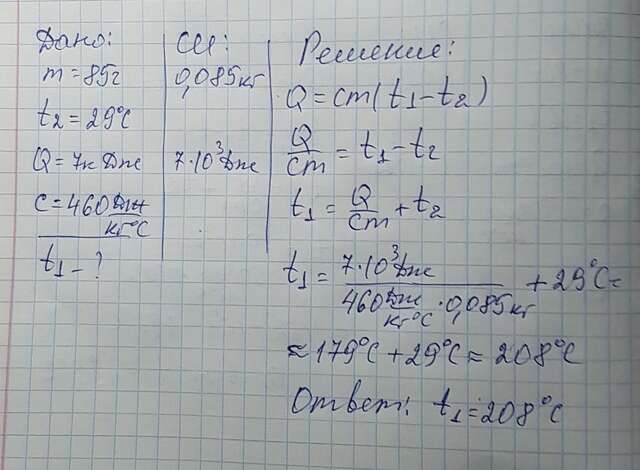 Дано:
m = 85г
t₂ = 29°C
Q = 7кДж
c = 460 Дж/кг°C
t₁ - ?
СИ:
0,085кг
7·10³Дж
Решение:
Q = cm(t₁ - t₂)
Q/cm = t₁ - t₂
t₁ = Q/cm + t₂
t₁ = 7·10³Дж / 460 Дж/кг°C · 0,085кг + 29°C =
≈ 179°C + 29°C ≈ 208°C
Ответ: t₁ = 208°C